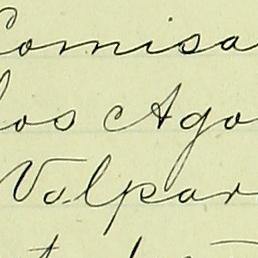 Comisa
los Ago
Valpar